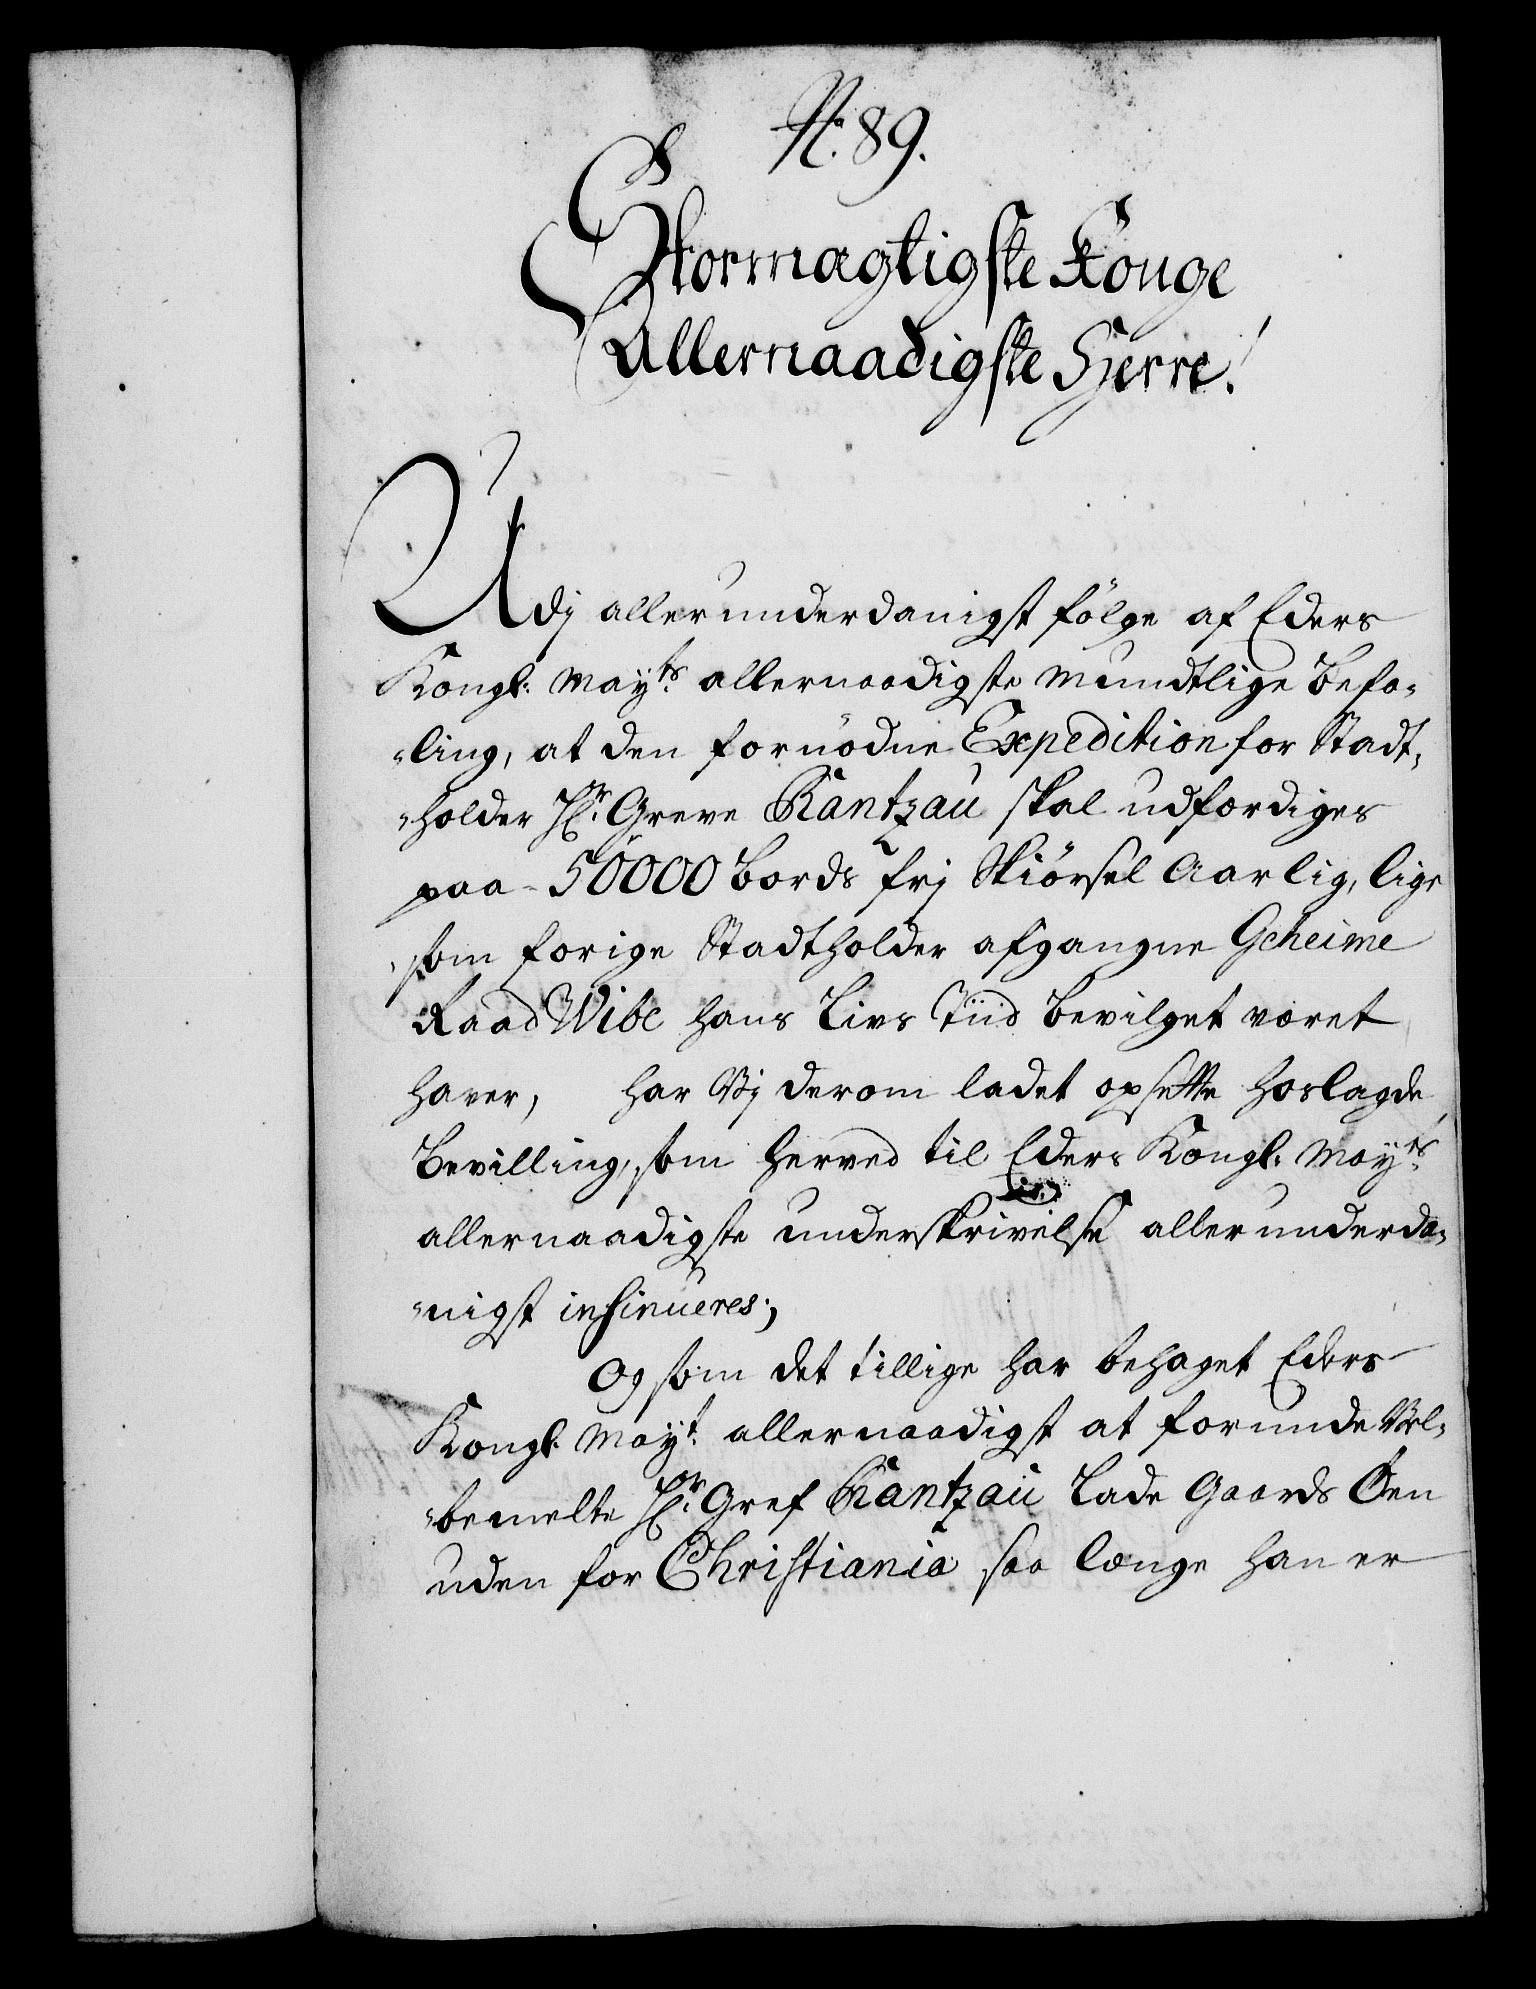 No. 89.
Stormægtigste Konge
Allernaadigste Herre!
Udj allerunderdanigst fölge af Eders
Kongl: Mayts. allernaadigste mundtlige Befa-
-ling, at den fornödne Expedition for Stadt-
-holder Hr. Greve Rantzau skal udfærdiges
paa 50000 Bords frj Skiörsel Aarlig, lige
som forige Stadtholder afgangne Geheime
Raad Wibe hans Livs Tiid bevilget været
haver, har Vj derom ladet opsette hoslagde
Bevilling, som herved til Eders Kongl: Mayts.
allernaadigste underskrivelse allerunderda-
-nigst insinueres;
Og som det tillige har behaget Eders
Kongl: Mayt. allernaadigst at forunde Vel-
-bemelte Hr. Gref Rantzau Lade Gaards Öen
uden for Christiania saa længe han er